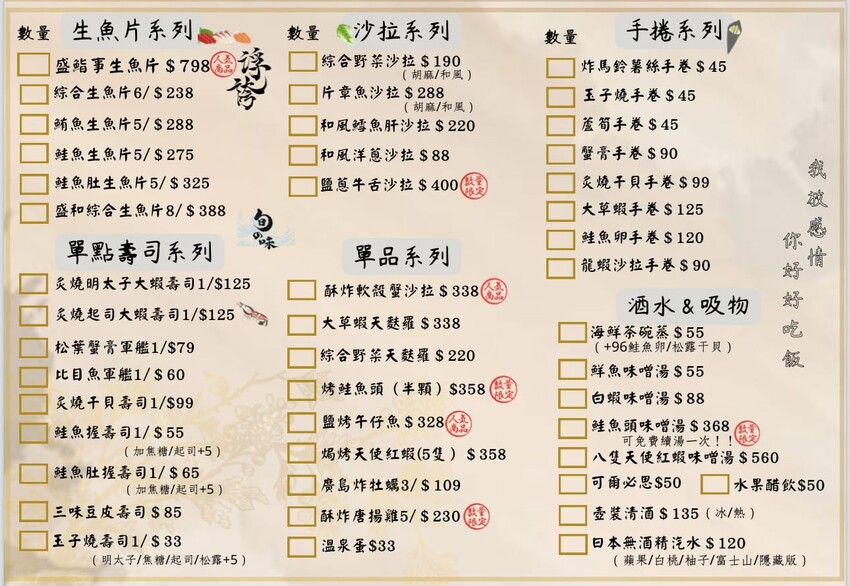 數量 生魚片系列
盛鮨事生魚片 $798 人氣商品
浮誇
綜合生魚片6/ $238
鮪魚生魚片5/ $288
鮭魚生魚片5/ $275
鮭魚肚生魚片5/ $325
盛和綜合生魚片8/ $388
旬の味
單點壽司系列
炙燒明太子大蝦壽司1/$125
炙燒起司大蝦壽司1/$125
松葉蟹膏軍艦1/$79
比目魚軍艦1/ $60
炙燒干貝壽司1/$99
鮭魚握壽司1/ $55
(加焦糖/起司+5)
鮭魚肚握壽司1/ $65
(加焦糖/起司+5)
三味豆皮壽司 $85
玉子燒壽司1/ $33
(明太子/焦糖/起司/松露+5)
數量 沙拉系列
綜合野菜沙拉 $190
(胡麻/和風)
片章魚沙拉 $288
(胡麻/和風)
和風鱈魚肝沙拉 $220
和風洋蔥沙拉 $88
鹽蔥牛舌沙拉 $400 數量限定
單品系列
酥炸軟殼蟹沙拉 $338 人氣商品
大草蝦天麩羅 $338
綜合野菜天麩羅 $220
烤鮭魚頭（半顆）$358 數量限定
鹽烤午仔魚 $328 人氣商品
焗烤天使紅蝦(5隻) $358
廣島炸牡蠣3/ $109
酥炸唐揚雞5/ $230 數量限定
溫泉蛋$33
數量 手捲系列
炸馬鈴薯絲手卷 $45
玉子燒手卷 $45
蘆筍手卷 $45
蟹膏手卷 $90
炙燒干貝手卷 $99
大草蝦手卷 $125
鮭魚卵手卷 $120
龍蝦沙拉手卷 $90
酒水 & 吸物
海鮮茶碗蒸 $55
(+96鮭魚卵/松露干貝)
鮮魚味噌湯 $55
白蝦味噌湯 $88
鮭魚頭味噌湯 $368 數量限定
可免費續湯一次！！
八隻天使紅蝦味噌湯 $560
可爾必思$50 水果醋飲$50
壺裝清酒 $135 (冰/熱)
日本無酒精汽水 $120
(蘋果/白桃/柚子/富士山/隱藏版)
我敢感情
你好好吃飯